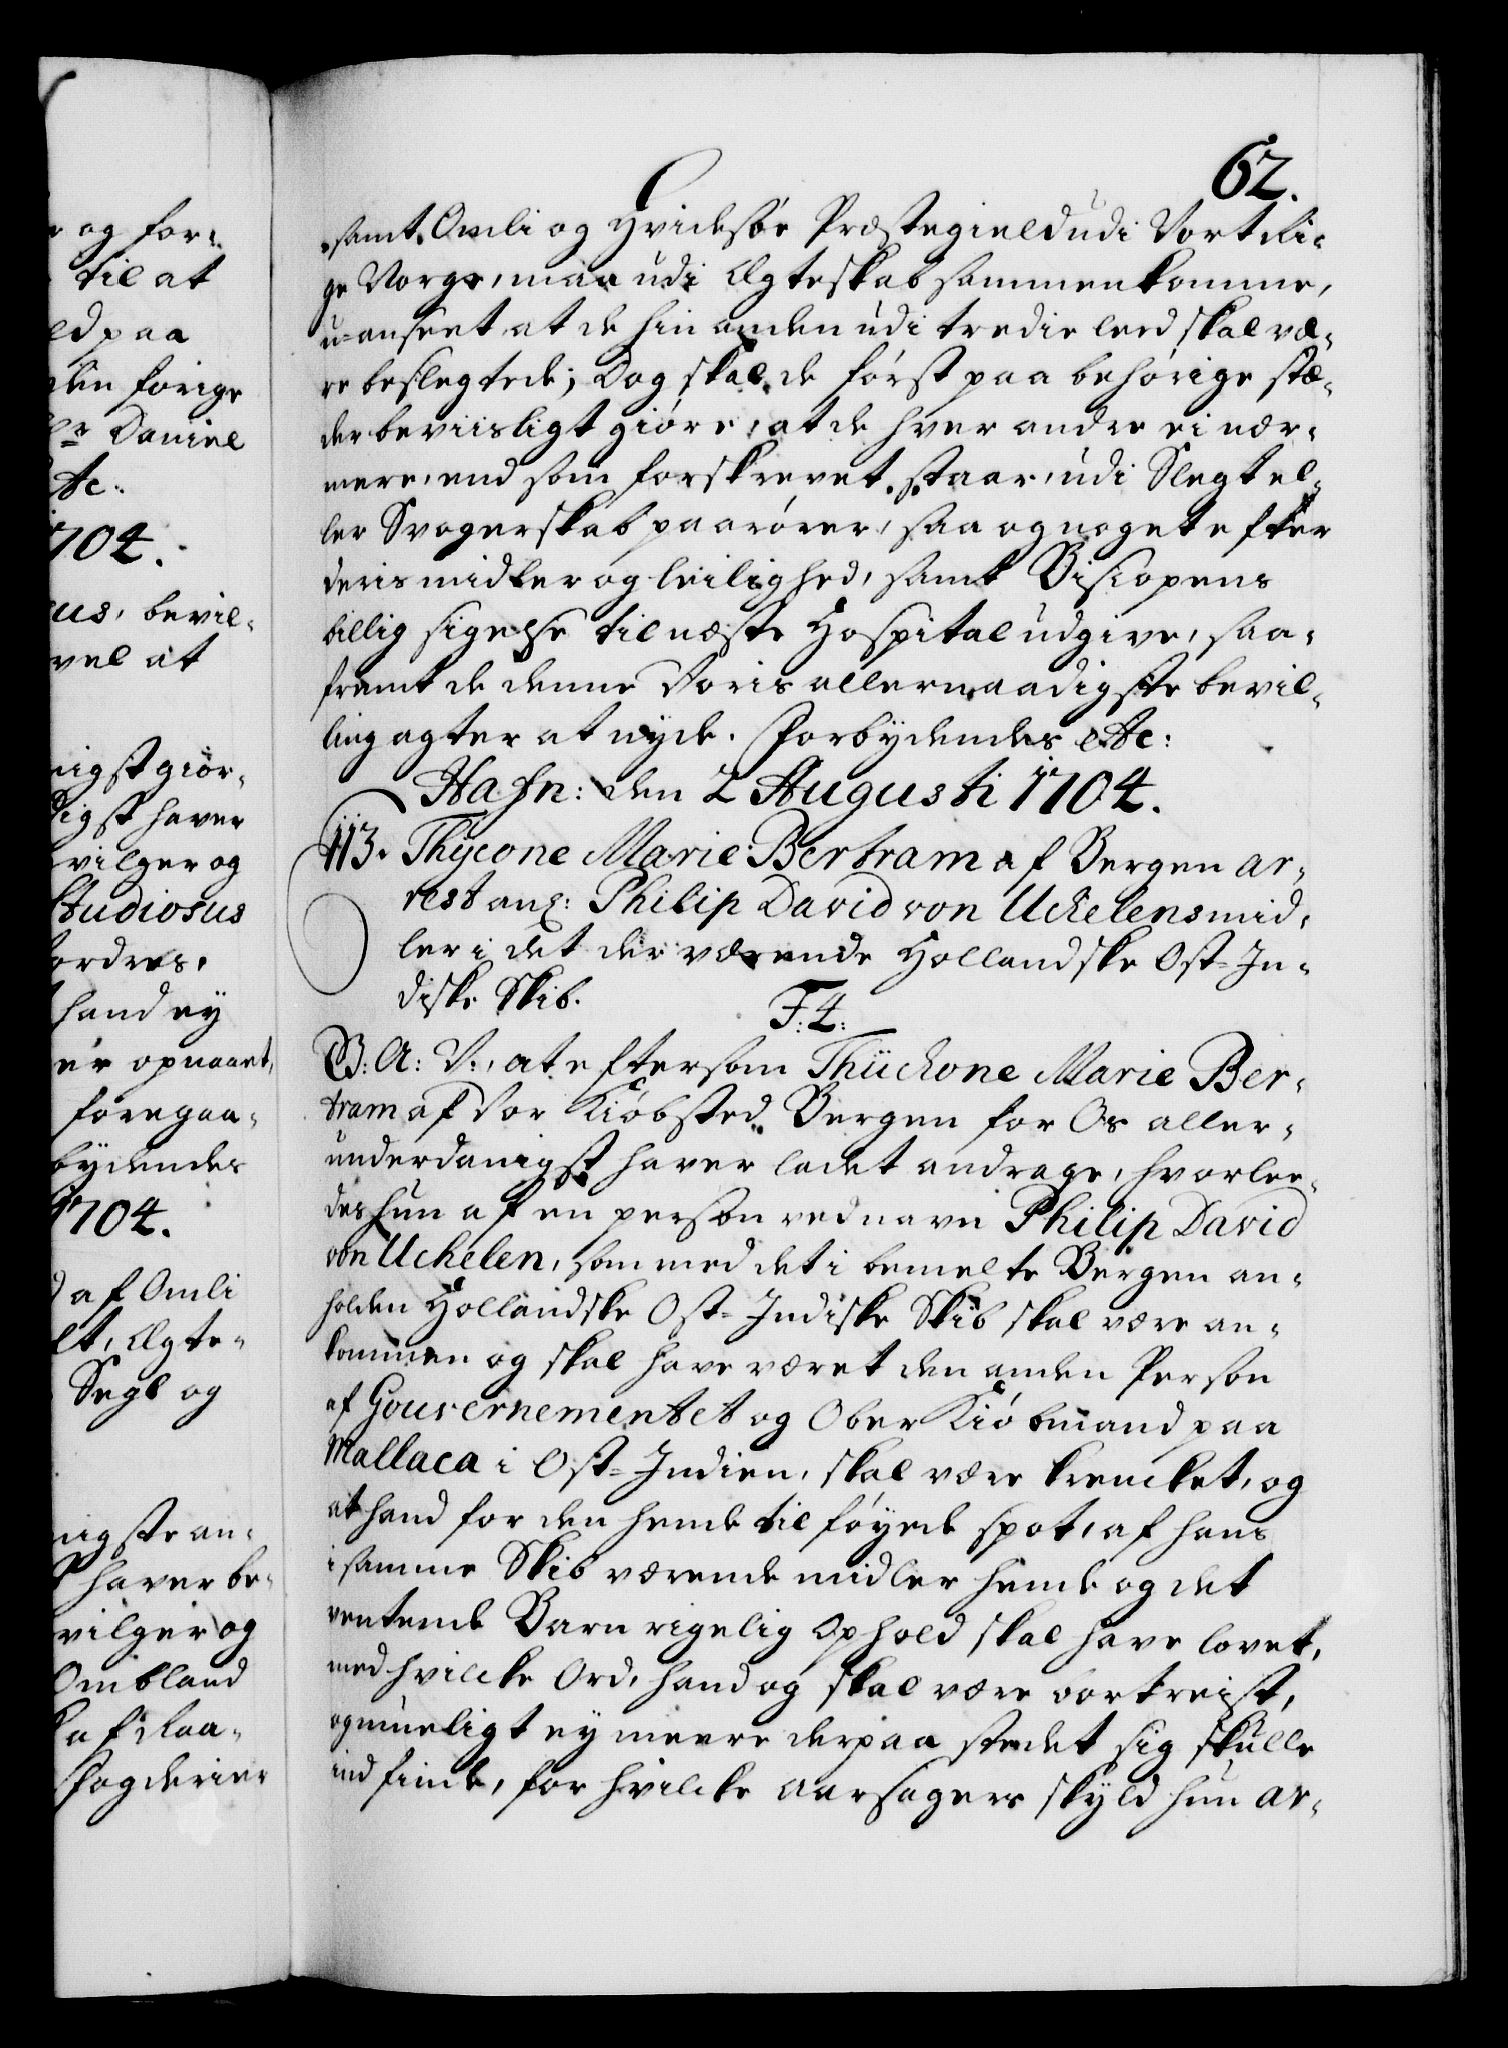 62.
samt Omli og Hvidesøe Præstegield udi Vort Ri-
ge Norge, maa udi Ægteskab sammenkomme,
u-anseet, at de hin anden udi tredie leed skal væ-
re beslegtede; Dog skal de først paa behørige stæ-
der beviisligt giøre, at de hver andre ei nær-
mere, end som forskrevet staar, udi Slegt el-
ler Svogerskab paarører, saa og noget efter
deris midler og leilighed, samt Biscopens
billig sigelse til næste Hospital udgive, saa-
fremt de denne Voris allernaadigste bevil-
ling agter at nyde. Forbydendes etc:
Hafn: den 2 Augusti 1704.
113. Thÿcone Marie Bertram af Bergen ar-
rest anl: Philip David von Uchelens mid-
ler i det der værende Hollandske Ost-In-
diske Skib.
F: 4:
G: A: V:, at eftersom Thÿchone Marie Ber-
tram af Vor Kiøbsted Bergen for Os aller-
underdanigst haver ladet andrage, hvorlee-
des hun af en person ved navn Philip David
von Uchelen, som med det i bemelte Bergen an-
holden Hollandske Ost-Indiske Skib skal være an-
kommen og skal have været den anden Person
af Gouvernementet og Ober Kiøbmand paa
Mallaca i Ost-Indien, skal være krencket, og
at hand for den hende tilføyede spot, af hans
i samme Skib værende midler hende og det
ventende Barn rigelig Ophold skal have lovet,
med hvilcke Ord, hand og skal være bortreist,
og mueligt ey meere der paa stedet sig skulle
indfinde, for hvilcke aarsagers skyld hun ar-
og for-
til at
ld paa
den forige
Hr Daniel
etc:
1704.
us, bevil-
vel at
nigst giør-
digst haver
vilger og
Studiosus
ordres,
hand ey
er opnaaet,
foregaa-
bydendes
1704.
af Omli
lt, Ægte-
Segl og
nigste an-
haver be-
vilger og
Ombland
af Raa-
Fogderier